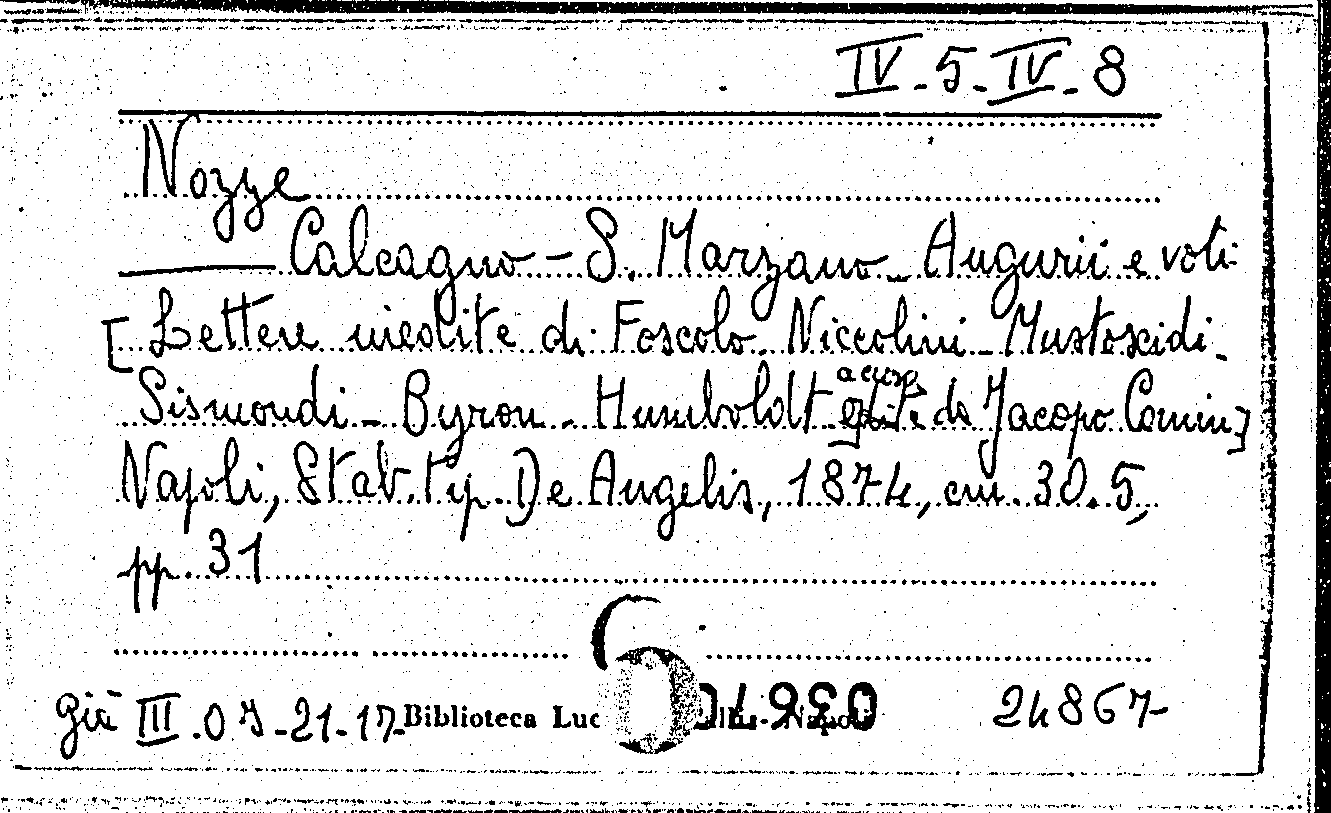 IV-5-IV-8
Nozze
Calcagno - S. Marzano - Augurii e voti
[Lettere inedite di Foscolo - Niccolini - Mustoxidi -
Sismondi - Byron - Humboldt a cura edite da Jacopo Comin]
Napoli, Stab. Tip. De Angelis, 1874, cm. 30.5,
pp. 31
già III.07-21-17 Biblioteca Luc Napoli 24867